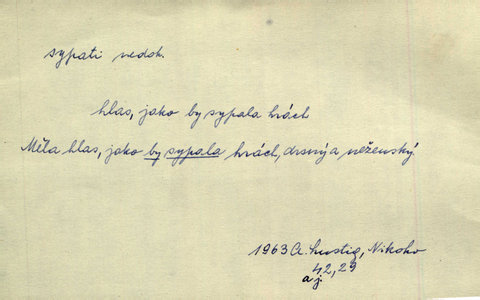 sypati nedok.
hlas, jako by sypala hrách
Měla hlas, jako by sypala hrách, drsný a neženský.
1963 A. Lustig, Nikoho
42, 29
aj.